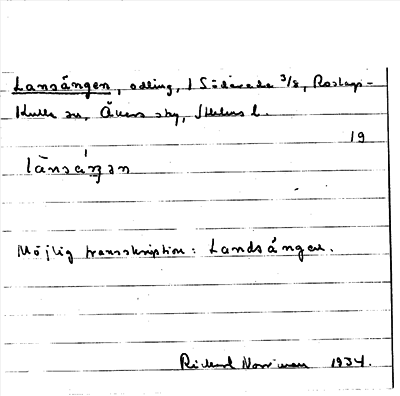 Lansängen, odling, 1 Södersta 3/8, Roslags-
Kulla sn, Åkers skg, Sthlms l.
19
lànsáŋən
Möjlig transskription: Landsängen.
Rickard Norrman 1934.